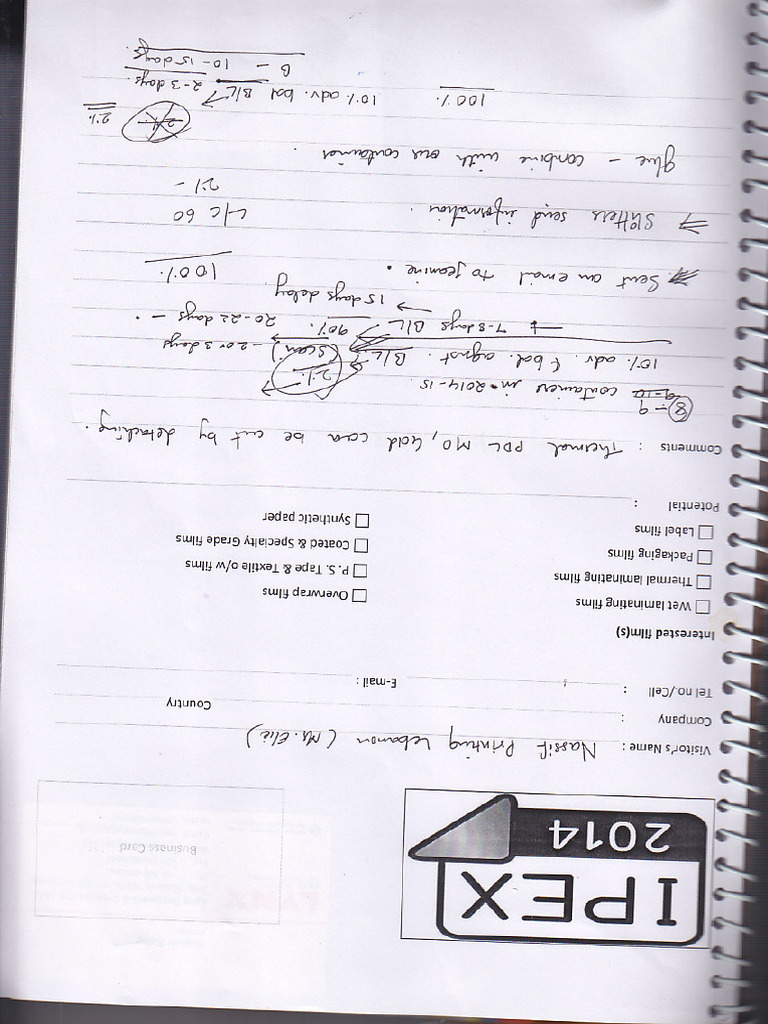 IPEX
2014
Business Card
Visitor's Name : Nassif Printing Lebanon (Mr. Elie)
Company :
Country
Tel no/Cell :
E-mail :
Interested film(s)
Wet laminating films
Overwrap films
Thermal laminating films
P. S. Tape & Textile o/w films
Packaging films
Coated & Specialty Grade films
Label films
Synthetic paper
Potential :
Comments : Thermal PDL MO, Gold can be cut by detaching.
8-9 containers in 2014-15
10% adv. & bal. against. B/L (Scan) - 2 or 3 days
2%
7-8 days B/L 90% 20-22 days -
15 days delay
Sent an email to jeanine. 100%
Slitters send information. L/C 60
2% -
glue - combine with our container.
2%
100% 10% adv. bal B/L 2-3 days.
B - 10-15 days.